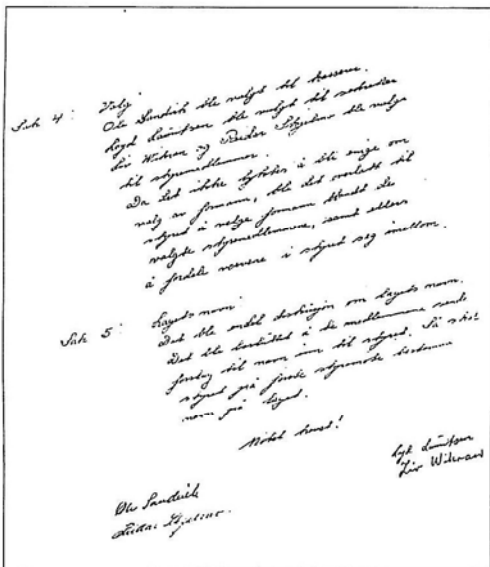 Sak 4: Valg
Ole Sandvik ble valgt til kasserer.
ble valgt til sekretær
Liv Wikran og Reidar ble valgt
til styremedlemmer.
Da det ikke lyktes å bli enige om
valg av formann, ble det overlatt til
styret å velge formann blandt de
valgte styremedlemmene, samt ellers
å fordele vervene i styret seg imellom.
Sak 5: Lagets navn
Det ble endel diskusjon om lagets navn.
Det ble besluttet å de medlemmene sende
forslag til navn inn til styret. Så skal
styret på første styremøte bestemme
navn på laget.
Møtet hevet!
Liv Wikran
Ole Sandvik